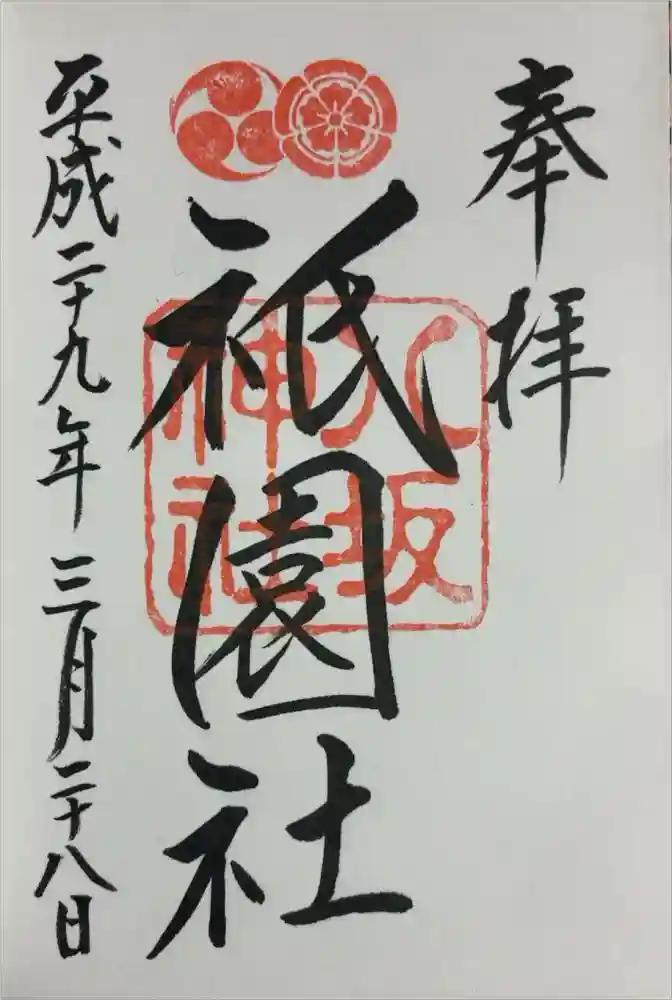 奉拝
八坂
神社
祇園社
平成二十九年三月二十八日